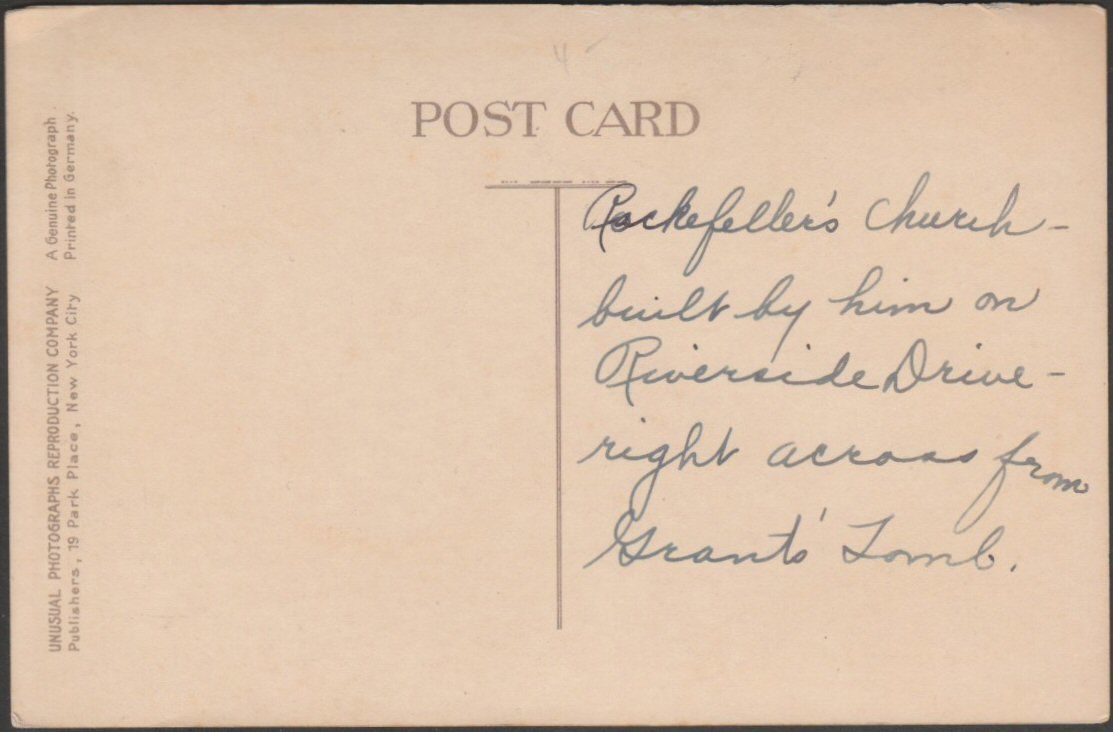 4
POST CARD
Rockefeller's church -
built by him on
Riverside Drive -
right across from
Grant's Tomb.
UNUSUAL PHOTOGRAPHS REPRODUCTION COMPANY A Genuine Photograph
Publishers, 19 Park Place, New York City Printed in Germany.